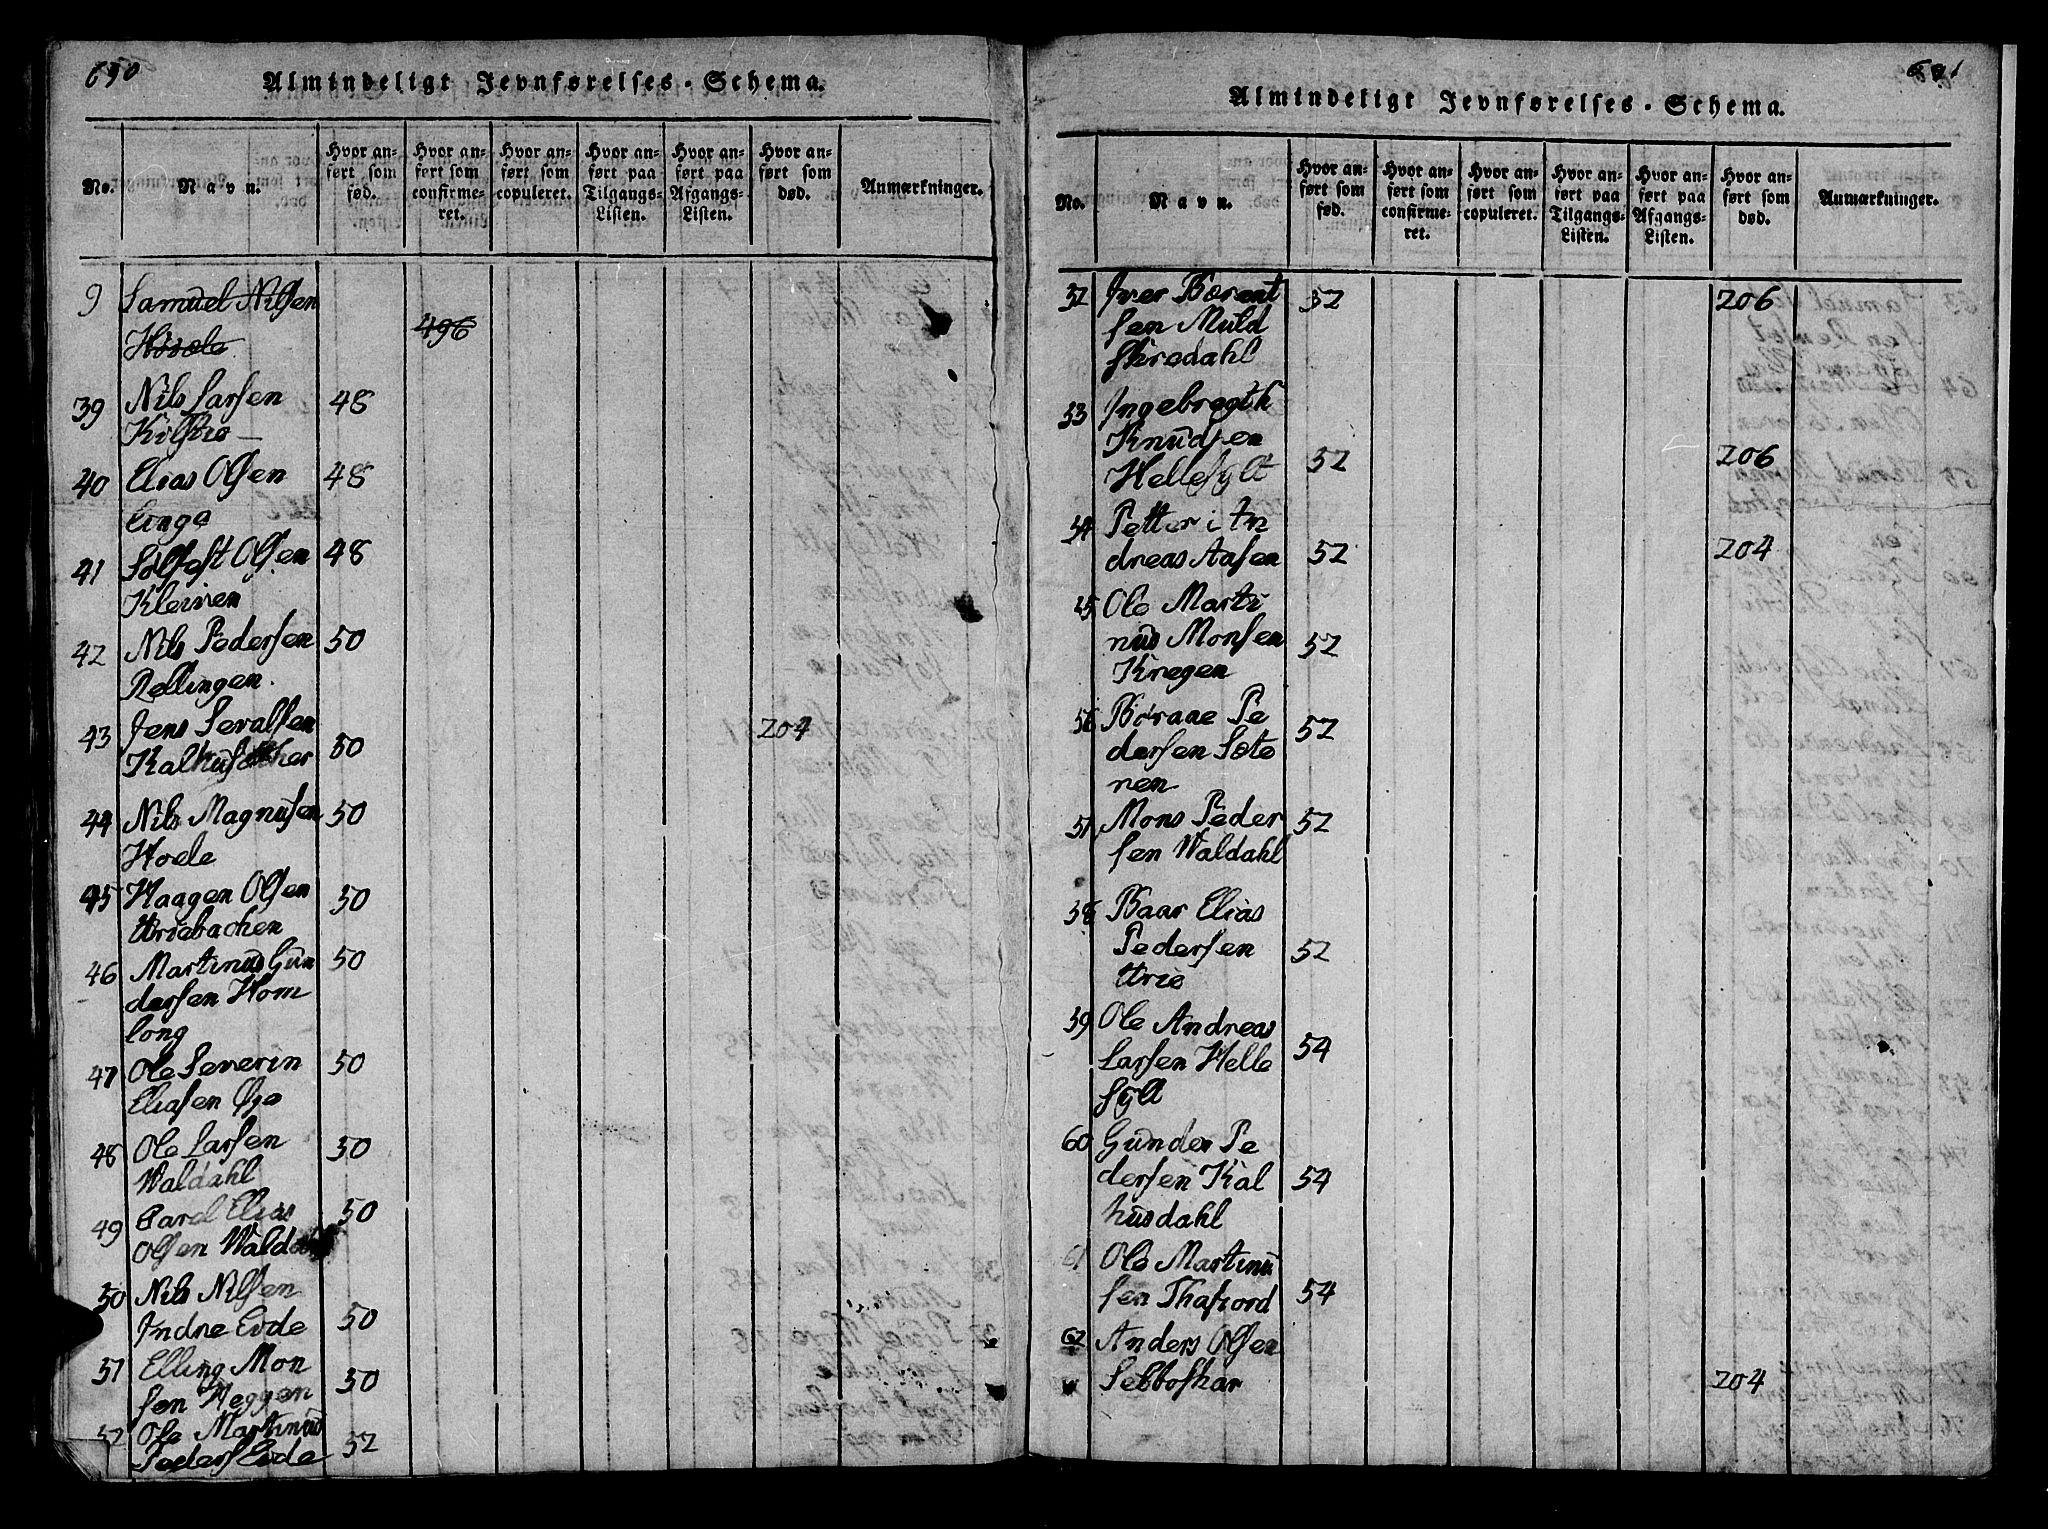 650
Almindeligt Jevnførelses-Schema.
No.
Navn.
Hvor an-
ført som
fød.
Hvor an-
ført som
confirme-
ret.
Hvor an-
ført som
copuleret.
Hvor an-
ført paa
Tilgangs-
Listen.
Hvor an-
ført paa
Afgangs-
Listen.
Hvor an-
ført som
død.
Anmærkninger.
9 Samuel Nilsen
Hovele 496
39 Nils Larsen 48
40 Elias Olsen 48
Linge
41 Solfest Olsen 48
Kleiven
42 Nils Pedersen 50
Rellingen.
43 Jens Sevalsen 204
50
44 Nils Magnusen 50
Hoele
45 Haagen Olsen 50
Uriebachen
46 Martinus Gun 50
dersen Hom
long
47 Ole Severin 50
Eliasen Øye
48 Ole Larsen 50
Waldahl
49 Carel Elias 50
Olsen
50 Nils Nilsen
Indre Eide 50
51 Elling Mon
sen Heggen 50
52 Ole Martinus
Peders Eide 52
691
Almindeligt Jevnførelses-Schema.
No.
Navn.
Hvor an-
ført som
fød.
Hvor an-
ført som
confirme-
ret.
Hvor an-
ført som
copuleret.
Hvor an-
ført paa
Tilgangs-
Listen.
Hvor an-
ført paa
Afgangs-
Listen.
Hvor an-
ført som
død.
Anmærkninger.
52 Iver Berent 52 206
sen Muld
skredahl
53 Ingebregth
Knudsen
Hellesylt 52 206
54 Petter i An
dreas Aasen 52 204
55 Ole Marti
nus Monsen 52
Kregen
56 Børaae Pe
dersen Sæte 52
nen
57 Mons Peder 52
sen Waldahl
58 Baar Elias
Pedersen 52
Urie
59 Ole Andreas
Larsen Helle 54
sylt
60 Gunder Pe
dersen Kal 54
husdahl
61 Ole Martinu
sen Thafiord 54
62 Anders Olsen
Sebboskar 204